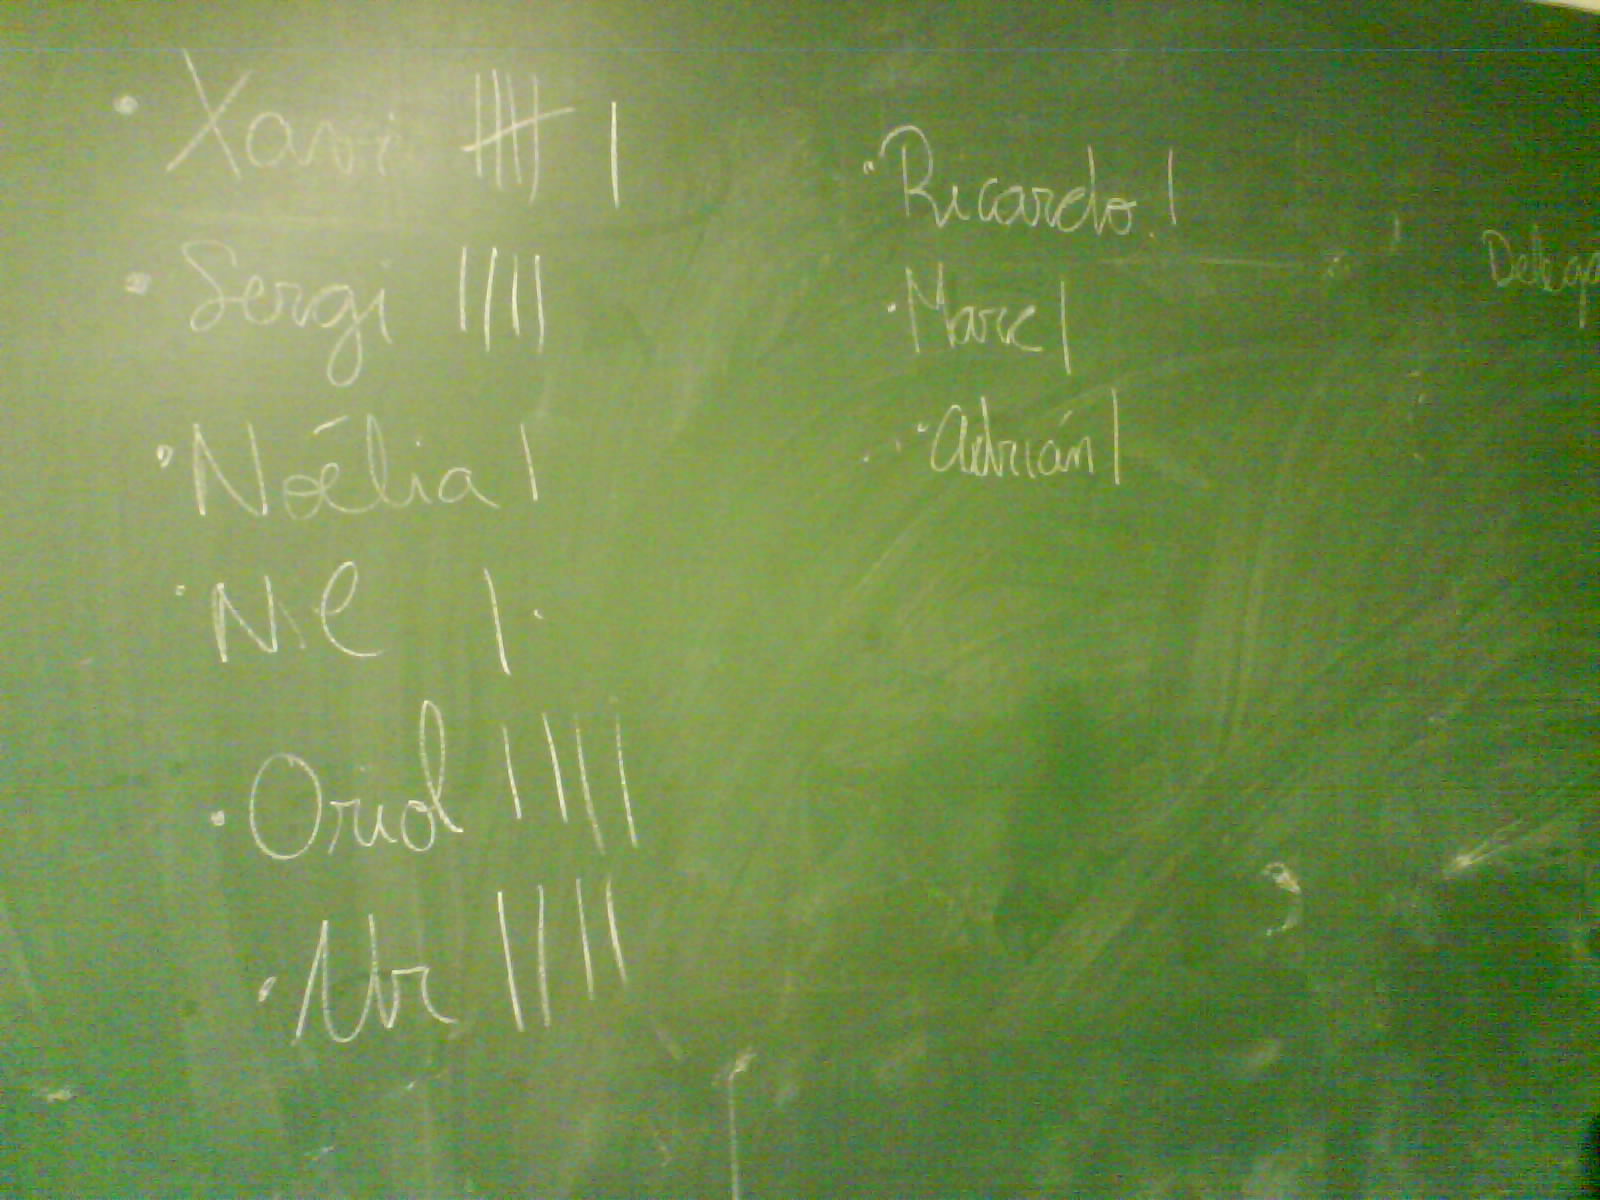 · Xavi |||| |
· Sergi ||||
· Noélia |
· Nil |
· Oriol ||||
||||
· Ricardo |
· Marc |
· Adrián |
Delega